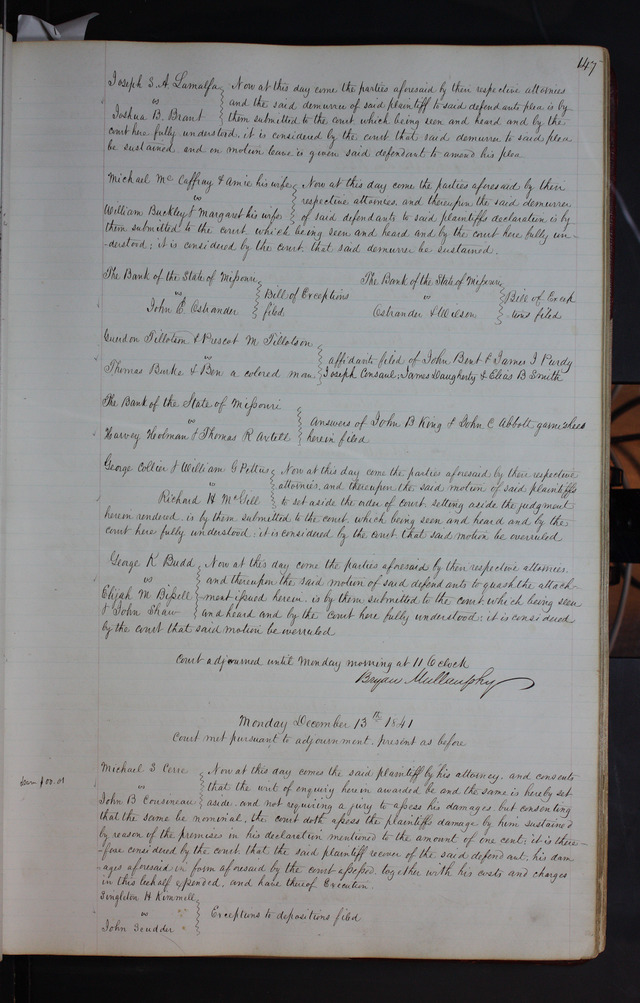 147
Joseph S. A. Lamalfa } Now at this day come the parties aforesaid by their respective attornies
vs } and the said demurrer of said plaintiff to said defendants plea is by
Joshua B. Brant } them submitted to the court, which being seen and heard and by the
court here fully understood, it is considered by the court that said demurrer to said plea
be sustained and on motion leave is given said defendant to amend his plea
Michael McCaffray & Amie his wife } Now at this day come the parties aforesaid by their
vs } respective attornies, and thereupon the said demurrer
William Buckley & Margaret his wife } of said defendants to said plaintiffs declaration is by
them submitted to the court, which being seen and heard and by the court here fully un-
derstood; it is considered by the court that said demurrer be sustained.
The Bank of the State of Missouri } Bill of Exceptions filed
vs
John E. Ostrander
The Bank of the State of Missouri } Bill of Excep
vs } tions filed
Ostrander & Wilson
Guerdon Tillotson & Prescot M Tillotson
vs } affidavits filed of John Bent & James J Purdy
Thomas Burke & Ben a colored man } Joseph Consaul, James Daugherty & Elias B Smith
The Bank of the State of Missouri
vs } answers of John B King & John C Abbott garnishees
Harvey Holman & Thomas R Avlett } herein filed
George Collier & William G Pettus } Now at this day come the parties aforesaid by their respective
vs } attornies, and thereupon the said motion of said plaintiffs
Richard H McGill } to set aside the order of court, setting aside the judgment
herein rendered, is by them submitted to the court, which being seen and heard and by the
court here fully understood, it is considered by the court that said motion be overruled
George K Budd } Now at this day come the parties aforesaid by their respective attornies,
vs } and thereupon the said motion of said defendants to quash the attach-
Elijah M Bissell } ment issued herein, is by them submitted to the court, which being seen
& John Shaw } and heard and by the court here fully understood; it is considered
by the court that said motion be overruled
Court adjourned until Monday morning at 11 O'clock
Bryan Mullanphy
Monday December 13th 1841
Court met pursuant to adjournment, present as before
00.01
Michael S Cerre } Now at this day comes the said plaintiff by his attorney, and consents
vs } that the writ of enquiry herein awarded be and the same is hereby set
John B Cousineau } aside, and not requiring a jury to assess his damages, but consenting
that the same be nominal, the court doth assess the plaintiffs damage by him sustained
by reason of the premises in his declaration mentioned to the amount of one cent; it is there-
-fore considered by the court that the said plaintiff recover of the said defendant, his dam
-ages aforesaid in form aforesaid by the court assessed, together with his costs and charges
in this behalf expended, and have thereof Execution.
Singleton H Kimmell
vs } Exceptions to depositions filed
John Scudder